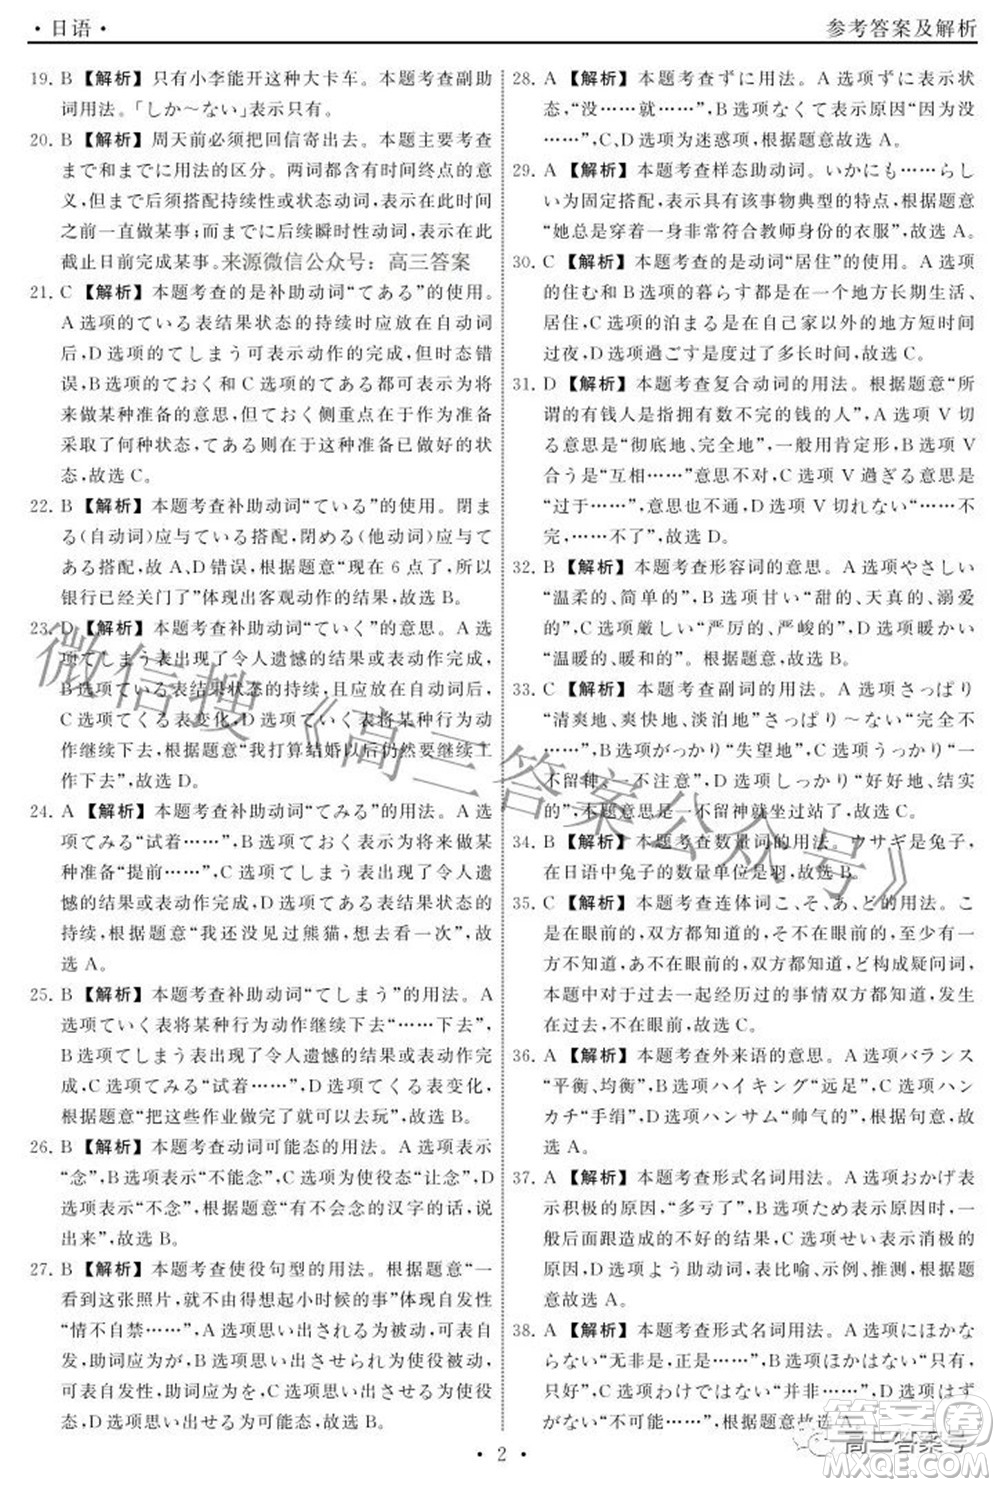 · 日语 ·
参考答案及解析
19. B 【解析】只有小李能开这种大卡车。本题考查副助
词用法。「しか～ない」表示只有。
20. B 【解析】周天前必须把回信寄出去。本题主要考查
まで与までに用法的区分。两词对译成汉语的意
义，但まで后须搭配持续性或状态动词，表示此时间
之前一直做某事；而までに后续瞬时性动词，表示在
此截止日前完成某事。来源微信公众号：高三答案
21. C 【解析】本题考查的是补助动词“てある”的使用。
A 选项的ている表结果状态的持续时应放在自动词
后，D 选项的てしまう可表示动作的完成，但时态错
误，B 选项的ておく和 C 选项的てある都可表示为将
来做某种准备的意思，但ておく侧重点在于作为准备
采取了何种状态，てある则在于这种准备后保持的状
态，故选 C。
22. B 【解析】本题考查补助动词“ている”的使用。閉ま
る(自动词)应与ている搭配，閉める(他动词)应与
てある搭配，故 A、D 错误，根据题意“现在 6 点了，所以
银行已经关门了”体现出客观动作的结果，故选 B。
23. D 【解析】本题考查补助动词“ていく”的意思。A 选
项てしまう表出现了令人遗憾的动作或动作完成，
B 选项ている表结果状态的持续，且应放在自动词后，
C 选项てくる表变化，D 选项ていく表将某种行为动
作继续下去，根据题意“我打算结婚以后仍然要继续工
作下去”，故选 D。
24. A 【解析】本题考查补助动词“てみる”的用法。A 选
项てみる“试着……”，B 选项ておく表示为将来做某
种准备“提前……”，C 选项てしまう表出现了令人遗
憾的动作或动作完成，D 选项ている表结果状态的
持续，根据题意“我还没见过熊猫，想去看一次”，故
选 A。
25. B 【解析】本题考查补助动词“てしまう”的用法。A
选项ていく表将某种行为动作继续下去“……下去”，
B 选项てしまう表出现了令人遗憾的动作或动作完
成，C 选项てみる“试着……”，D 选项てくる表变化，
根据题意“把这些作业做完了就可以去玩”，故选 B。
26. B 【解析】本题考查动词可能态的用法。A 选项表示
“念”，B 选项表示“不能念”，C 选项为使役态“让念”，D
选项表示“不念”，根据题意“如果有不会念的汉字的话，请
说出来”，故选 B。
27. B 【解析】本题考查使役句型的用法。根据题意“一
看到这张照片，就不由得想起小时候的事”体现出
“情不自禁……”，A 选项思い出される为被动，可表自
发，助词应为が，B 选项思い出させられる为使役被动，
可表自发，助词应为を，C 选项思い出させる为使役
态，D 选项思い出せる为可能态，故选 B。
28. A 【解析】本题考查ずに用法。A 选项ずに表示状
态，“没……就……”，B 选项なくて表示原因“因为没
……”，C、D 选项为迷惑项，根据题意故选 A。
29. A 【解析】本题考查样态助动词。いかにも……らし
い为固定搭配，表示具有该事物典型的特点，根据题意
“她总是穿着一身非常符合教师身份的衣服”，故选 A。
30. C 【解析】本题考查的是动词“居住”的用法。A 选项
的住む和 B 选项的暮らす都是在一个地方居住生活，
居住，C 选项的泊まる是在自己家以外的地方短时间
过夜，D 选项過ごす是度过了多长时间，故选 C。
31. D 【解析】本题考查复合动词的用法。根据题意“所
谓的有钱人是指拥有多到数不完的钱的人”，A 选项 V 切
る意思是“彻底地、完全地”，一般用肯定形，B 选项 V
合う是“互相……”意思不对，C 选项 V 過ぎる意思是
“过于……”，意思不对，D 选项 V 切れない“……不
完，……不了”，根据题意，故选 D。
32. B 【解析】本题考查形容词的意思。A 选项やさしい
“温柔的、简单的”，B 选项甘い“甜的、天真的、溺爱
的”，C 选项厳しい“严厉的、严峻的”，D 选项暖かい
“温暖的、暖和的”。根据题意，故选 B。
33. C 【解析】本题考查副词的用法。A 选项さっぱり
“清爽地、爽快地、淡泊地”さっぱり～ない“一点也不
……”，B 选项がっかり“失望地”，C 选项うっかり“一
不留神、一不注意”，D 选项しっかり“好好地、结实
的”，根据题意是一不留神就坐过站了，故选 C。
34. B 【解析】本题考查数量词的用法。ウサギ是兔子，
在日语中兔子的数量单位是羽，故选 B。
35. C 【解析】本题考查连体词こ、そ、あ、ど的用法。こ
是在眼前的，双方都知道的，そ不在眼前的，至少有一
方不知道的，あ是不在眼前的，双方都知道的。
本题中对过去一起经历过的事情双方都知道，发生
在过去，不在眼前，故选 C。
36. A 【解析】本题考查外来语的意思。A 选项バランス
“平衡、均衡”，B 选项ハイキング“远足”，C 选项ハン
カチ“手绢”，D 选项ハンサム“帅气的”，根据句意，故
选 A。
37. A 【解析】本题考查形式名词用法。A 选项おかげ表
示积极的原因，“多亏了”，B 选项ため表示客观的原
因，多造成的不好的结果，C 选项せい表示消极的
原因，D 选项よう助动词，表比喻、示例、推测，根据题
意，故选 A。
38. A 【解析】本题考查形式名词用法。A 选项にほかな
らない“无非是，正是……”，B 选项ほかはない“只有，
只好”，C 选项わけではない“并非……”，D 选项はず
がない“不可能……”，根据题意故选 A。
微信搜《高三答案公众号》
高三答案号
答案圈
MXQE.COM
· 2 ·